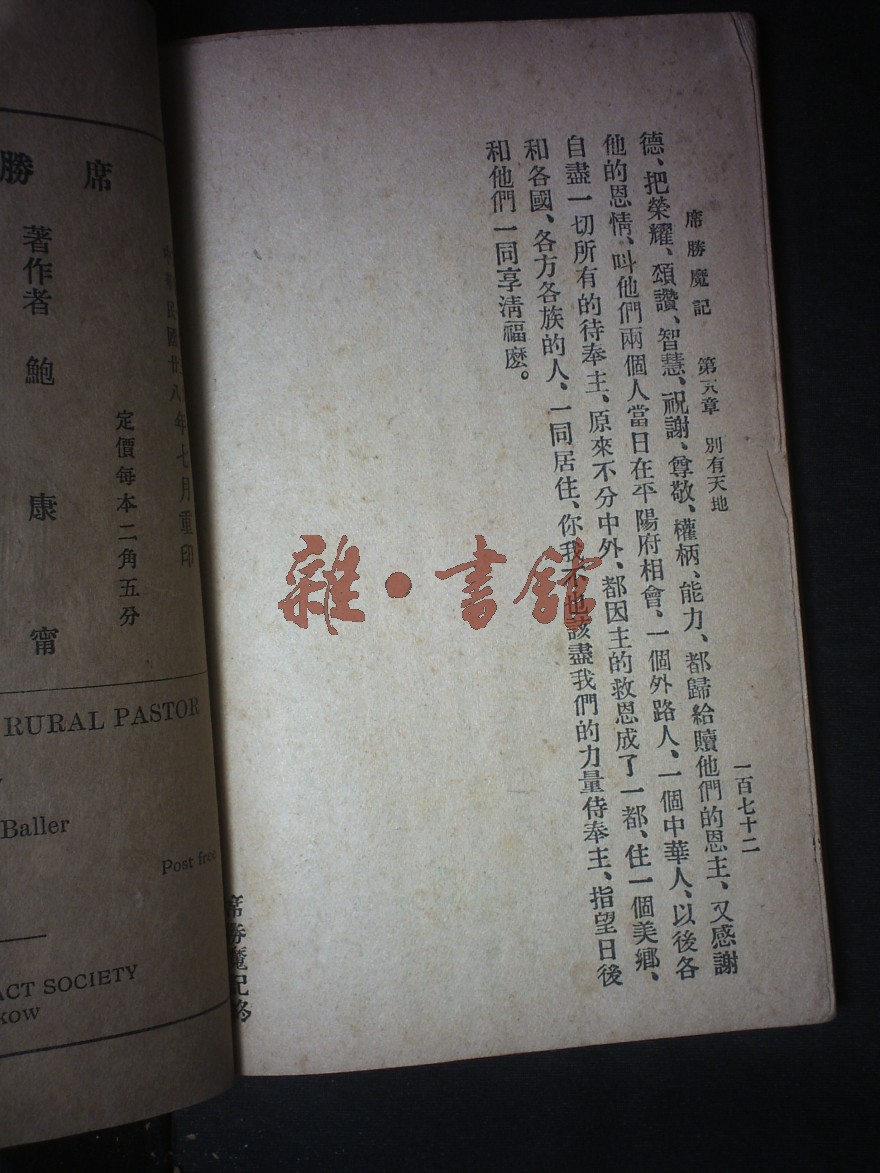 席勝魔記 第十八章 別有天地 一百七十二
德、把榮耀、頌讚、智慧、祝謝、尊敬、權柄、能力、都歸給贖他們的恩主、又感謝
他的恩情、叫他們兩個人當日在平陽府相會、一個外路人、一個中華人、以後各
自盡一切所有的待奉主、原來不分中外、都因主的救恩成了一都、住一個美鄉、
和各國、各方各族的人、一同居住、你我不也該盡我們的力量侍奉主、指望日後
和他們一同享清福麽。
席勝魔記終
雜·書館
中華民國廿八年七月重印
定價每本二角五分
席勝
著作者 鮑康甯
RURAL PASTOR
Baller
Post free
ACT SOCIETY
kow